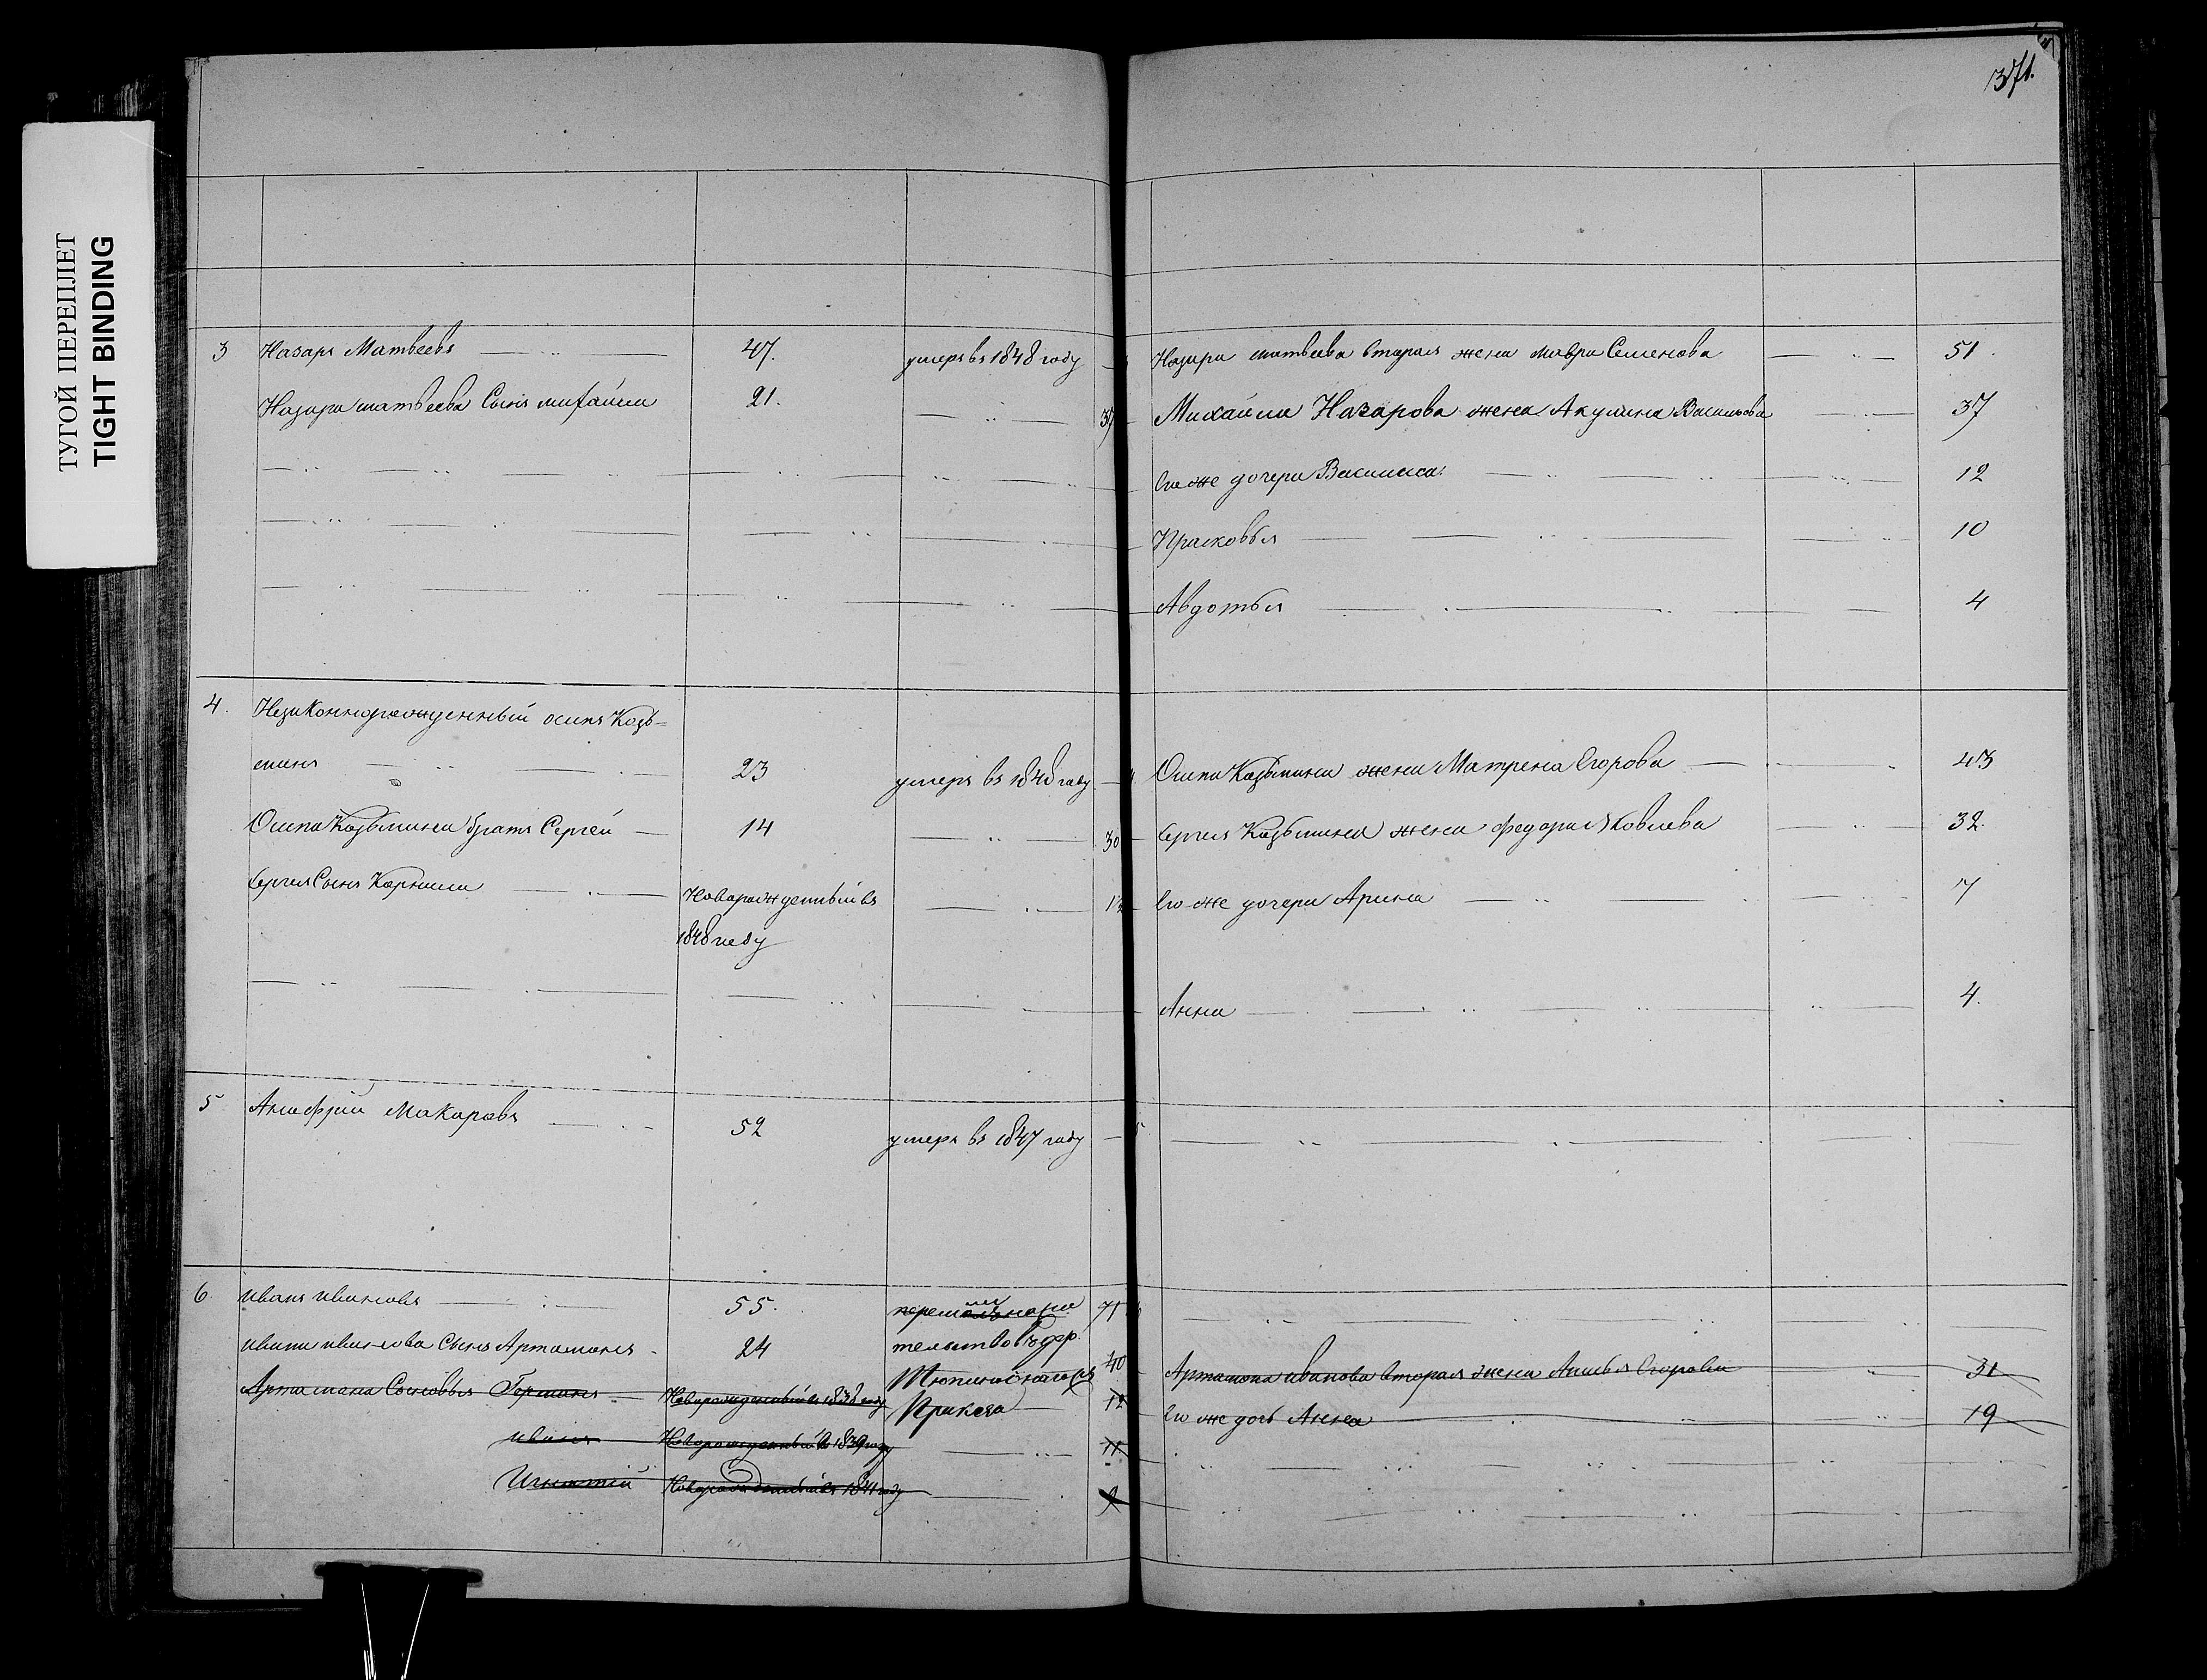 ТУГОЙ ПЕРЕПЛЕТ
TIGHT BINDING
371.
3 Назаръ Матвеевъ 47. умеръ въ 1848 году
Назара матвеева Сынъ михайла 21. 37
4. Незаконнорожденный осипъ Козь-
минъ 23 умеръ въ 1848 году
Осипа Козьмина братъ Сергей 14 30
Сергея Сынъ Корнила Новорожденный въ 12
1848 году
5 Анофрий Макаровъ 52 умеръ въ 1847 году
6 иванъ ивановъ 55. 71
ивана иванова Сынъ Артамонъ 24 40
Артамона Сыновья Германъ Новорожденный въ 1838 году 12
иванъ Новорожденный въ 1839 году 11
Игнатий Новорожденный въ 1841 году 9
Назара матвеева вторая жена мавра Семенова 51.
Михайла Назарова жена Акулина Васильева 37
Его же дочери Василиса 12
Прасковья 10
Авдотья 4
Осипа Козьмина жена Матрена Егорова 43
Сергея Козьмина жена федора Яковлева 32.
Его же дочери Арина 7
Анна 4.
5
Артамона иванова вторая жена Егорова 31
Его же дочь Анна 19